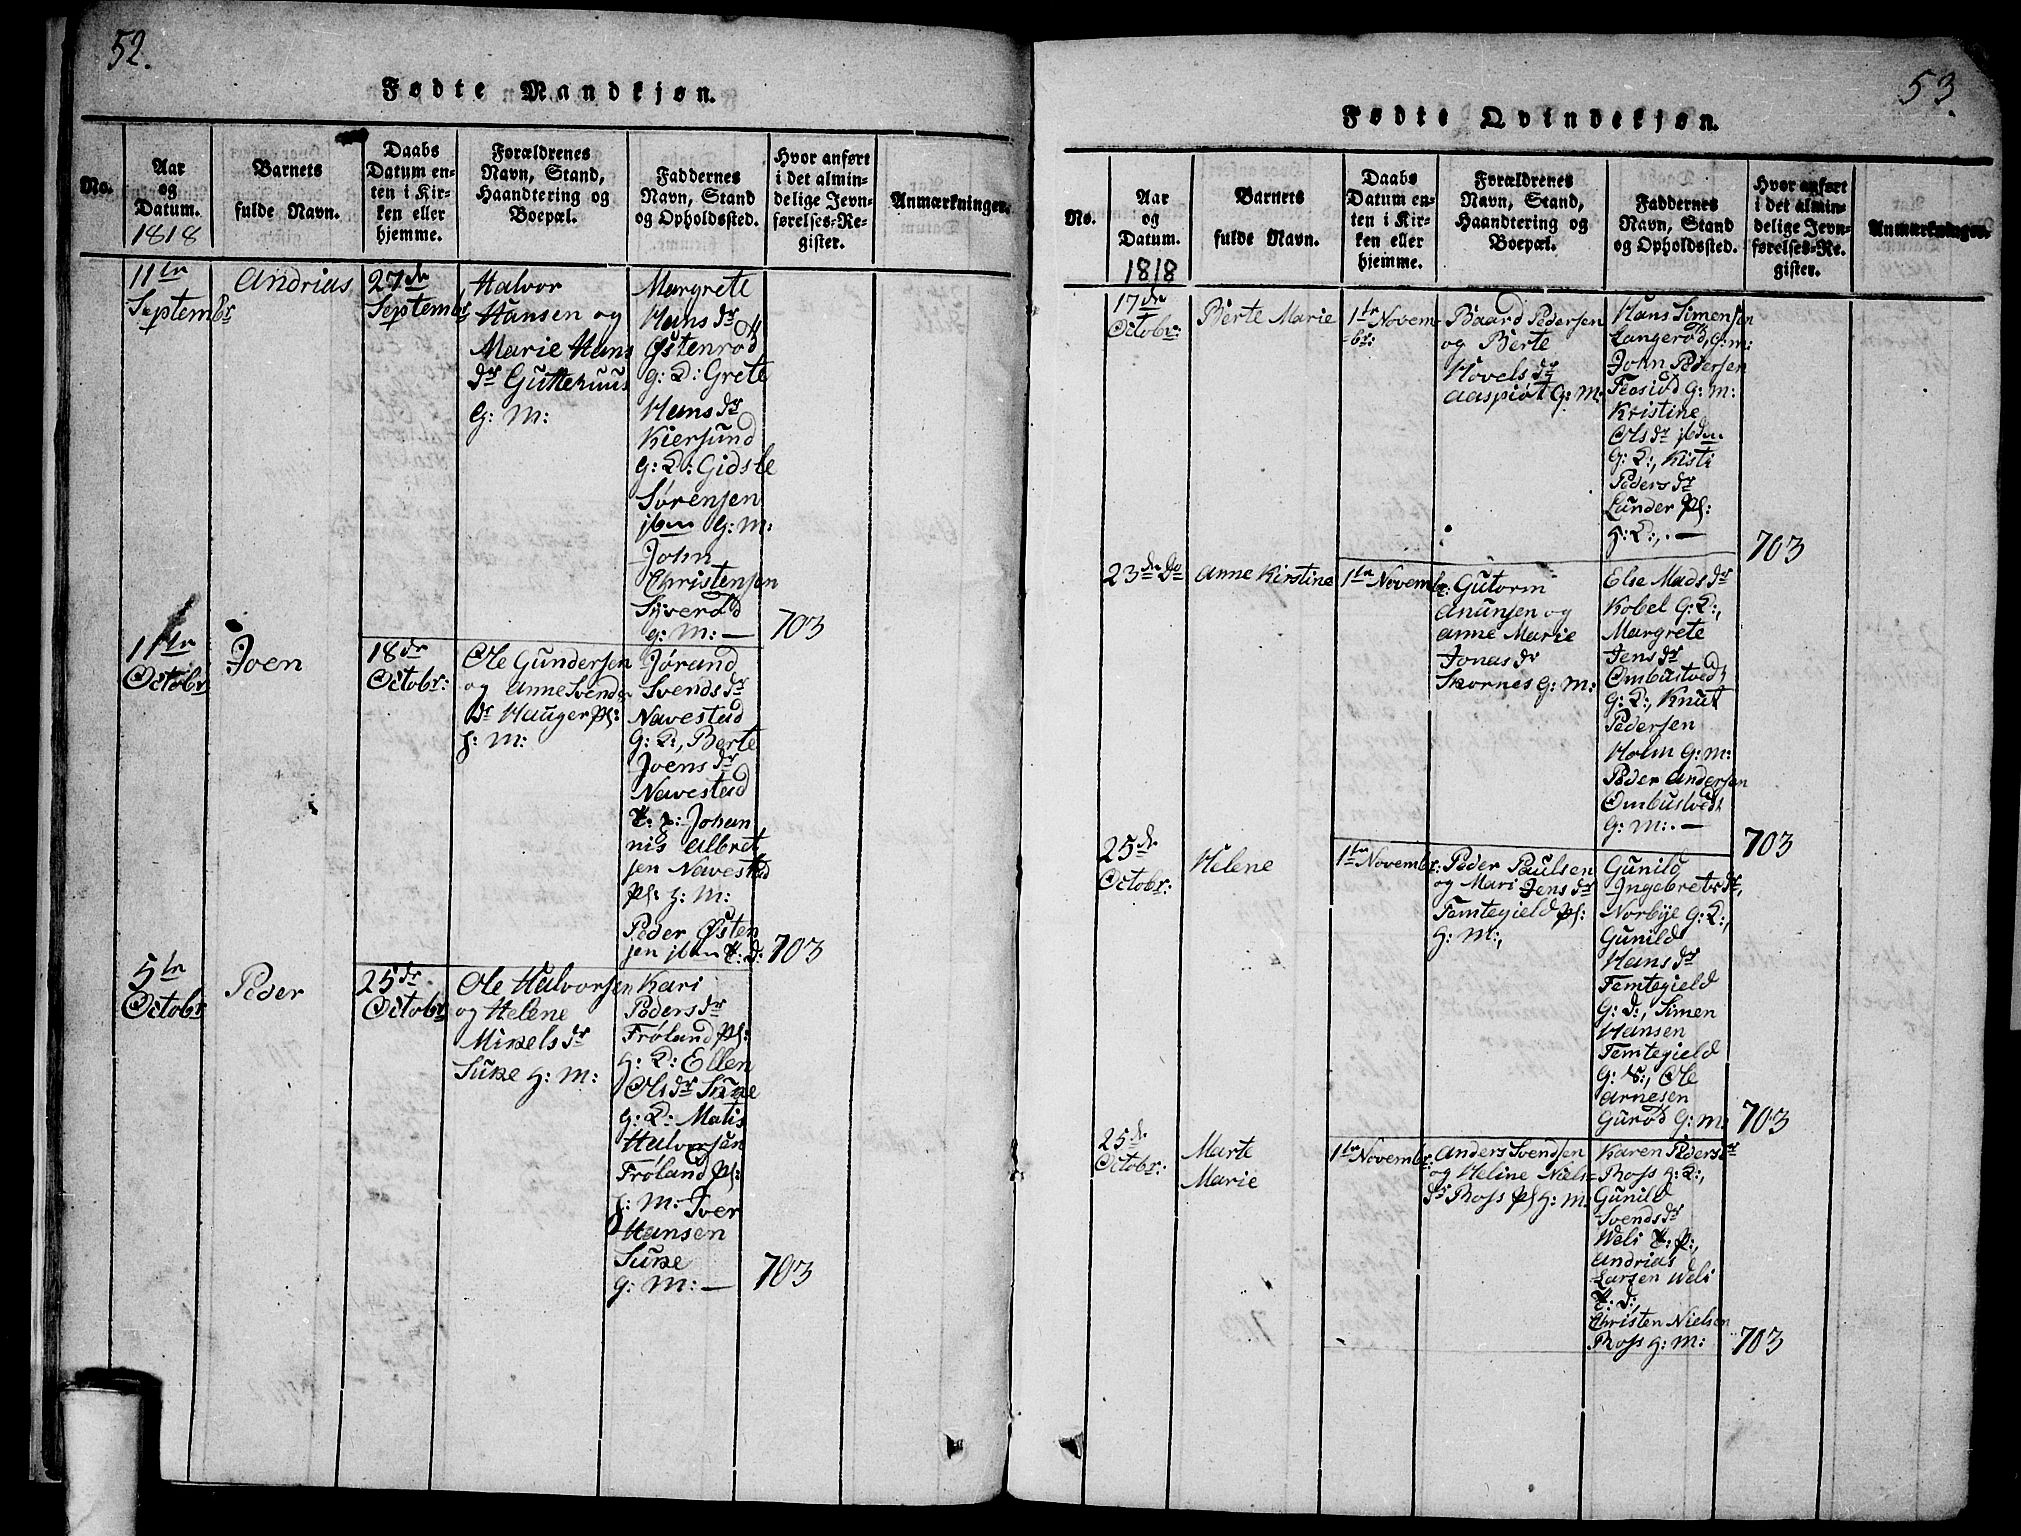 52.
Fødte Mandkjøn.
No.
Aar
og
Datum.
1818
Barnets
fulde Navn.
Daabs
Datum en-
ten i Kir-
ken eller
hjemme.
Forældrenes
Navn, Stand,
Haandtering og
Boepæl.
Faddernes
Navn, Stand
og Opholdssted.
Hvor anført
i det almin-
delige Jevn-
førelses-Re-
gister.
Anmærkninger.
11te
Septembr
Andrias
27de
Septembr
Halvor
Hansen og
Marie Hans
dr
G: M:
Margrete
Hans dr
Østenrød
G: D: Grete
Hans dr
Kiersund
G: D: Gidsle
Sørensen
ibm G: M:
John
Christensen
Syverød
G: M: —
703
11te
Octobr
Joen
18de
Octobr:
Ole Gundersen
og Anne Svends
dr Hauger Pl:
H: M:
Jørand
Svends dr
Navestad
G: D:, Berte
Joens dr
Navestad
T: P: Johan
nis Albret
sen Navestad
Pl: H: M:
Peder Østen
sen ibm T: D:
703
5te
Octobr
Peder
25de
Octobr
Ole Halvorsen
og Helene
Mikels dr
Suke H: M:
Kari
Peders dr
Frøland Pl:
H: D: Ellen
Ols dr Suke
G: D: Matis
Halvorsen
Frøland Pl:
H: M: Iver
Hansen
Suke
G: M: —
703
53.
Fødte Qvindekjøn.
No.
Aar
og
Datum.
1818
Barnets
fulde Navn.
Daabs
Datum en-
ten i Kir-
ken eller
hjemme.
Forældrenes
Navn, Stand,
Haandtering og
Boepæl.
Faddernes
Navn, Stand
og Opholdssted.
Hvor anført
i det almin-
delige Jevn-
førelses-Re-
gister.
Anmærkninger.
17de
Octobr:
Berte Marie
1te Novem-
br:
Baard Pedersen
og Berte
Hovels dr
G: M:
Hans Simensen
Langerød, G: M:
John Pedersen
G: M:
Kristine
Ols dr ibdm
G: D:, Kisti
Peders dr
Lunder Pl:
H: D:, . —
703
23de Do
Anne Kirstine
1te Novembr:
Gutorm
Anunsen og
Anne Marie
Jonas dr
Skornes G: M:
Else Mads dr
Kobel G: D:,
Margrete
Jens dr
Ombustvedt
G: D:, Knut
Pedersen
Holm G: M:
Peder Andersen
Ombustvedt
G: M: . —
703
25de
Octobr:
Helene
1te Novembr:
Peder Paulsen
og Mari Jens dr
Femtegield Pl:
H: M:,
Gunild
Ingebrets dr,
Norbye G: D:,
Gunild
Hans dr
Femtegield
G: D:, Simen
Hansen
Femtegield
G: S:, Ole
Arnesen
Gurød G: M:
703
25de
Octobr:
Marte
Marie
1te Novembr:
Anders Svendsen
og Heline Niels
dr Ross Pl H: M:
Karen Peders dr
Ross H: D:,
Gunild
Svends dr
Weli T: P:,
Andrias
Larsen Weli
T: D:,
Christen Nielsen
Ross H: M:
703